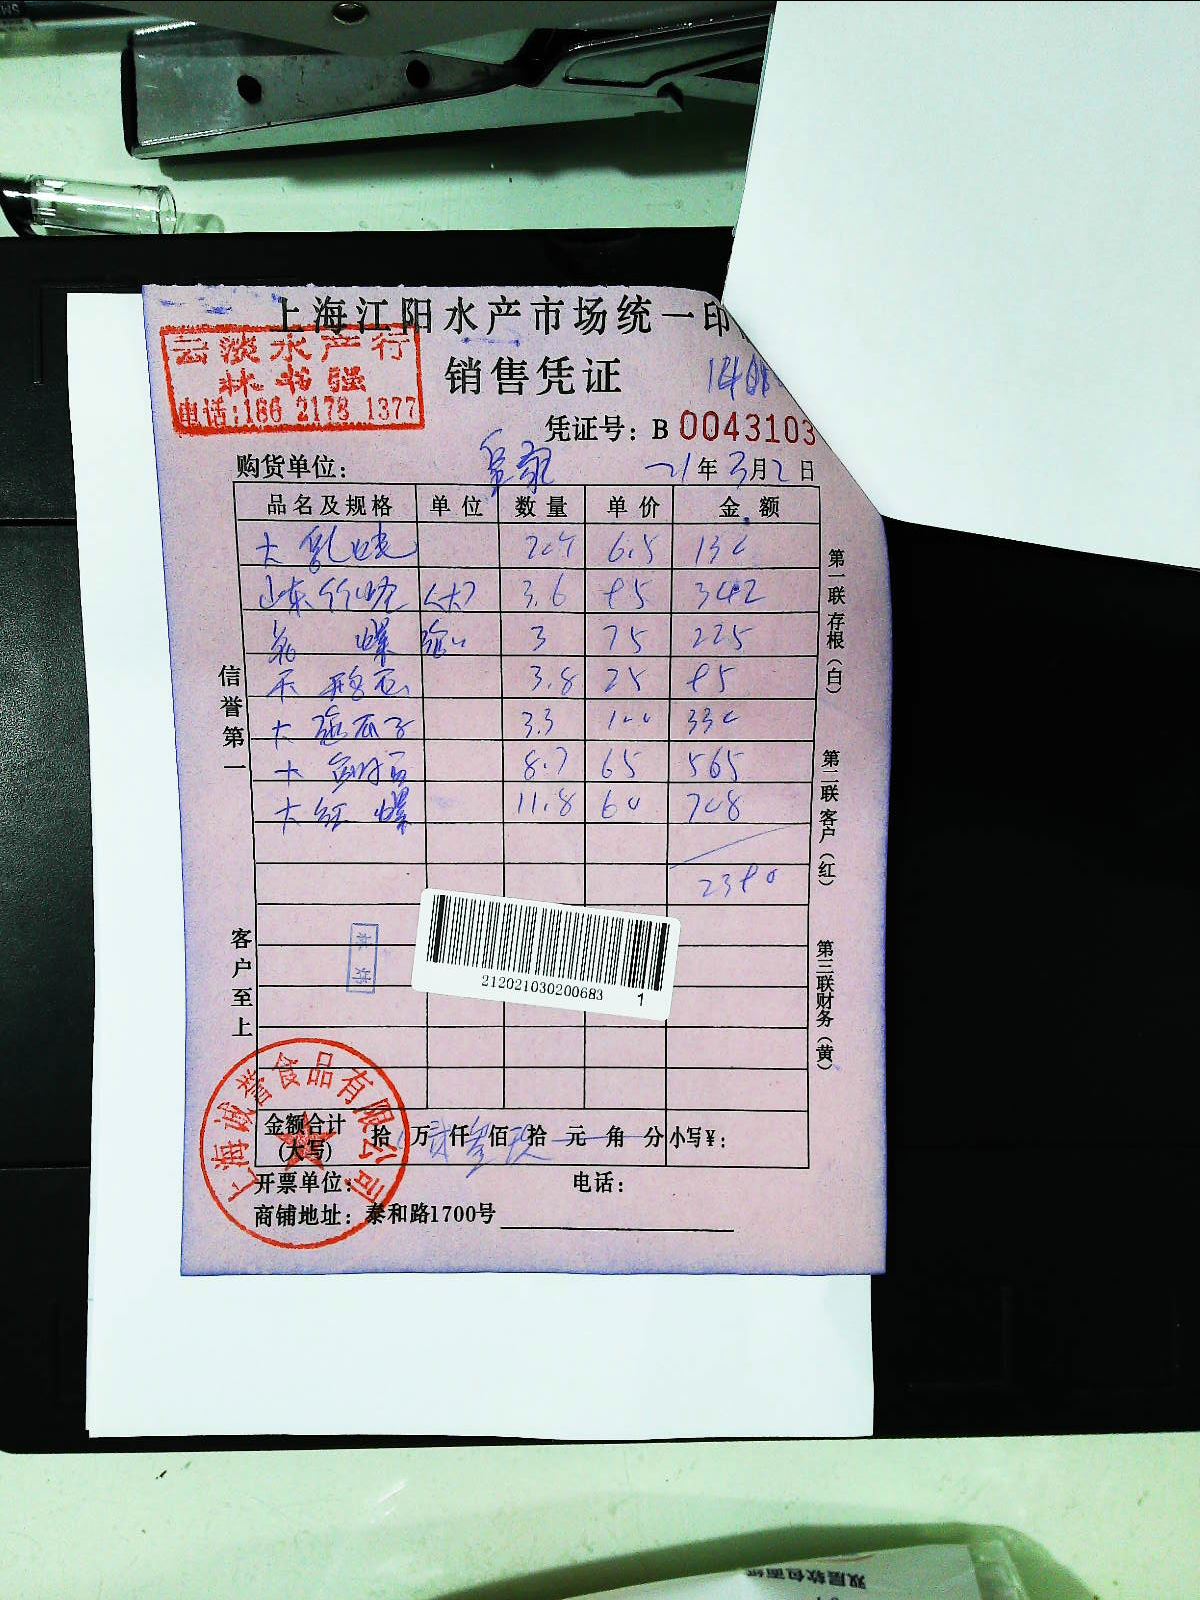 上海江阳水产市场统一印
销售凭证
云淡水产行
林书强
电话:186 2173 1377
凭证号: B 0043103
购货单位: 皇家
21年3月2日
品名及规格 单位 数量 单价 金额
大 6.5 130
山东 (大) 3.6 95 342
螺 3 75 225
3.8 25 95
大 3.3 100 330
大 8.7 65 565
大红螺 11.8 60 708
2390
信誉第一
客户至上
第一联存根(白)
第二联客户(红)
第三联财务(黄)
212021030200683 1
上海诚誉食品有限公司
金额合计(大写) 拾 万 贰 仟 叁 佰 玖 拾 元 角 分 小写¥:
开票单位: 电话:
商铺地址: 泰和路1700号
双层软包面